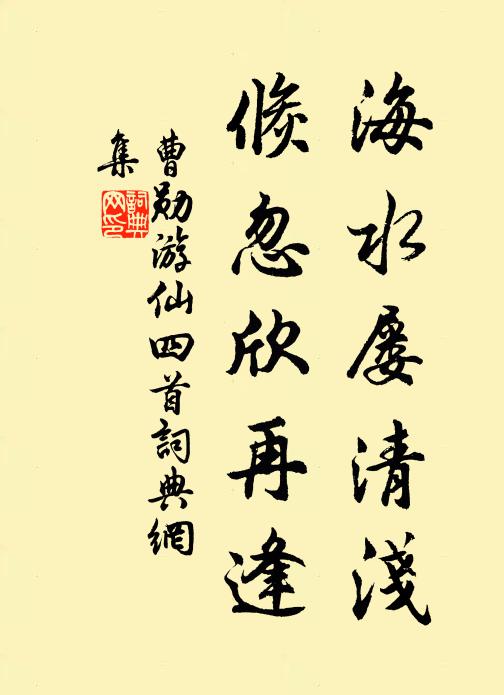 海水屡清淺
倏忽欣再逢
曹勛游仙四首詞典網
集
詞典网印